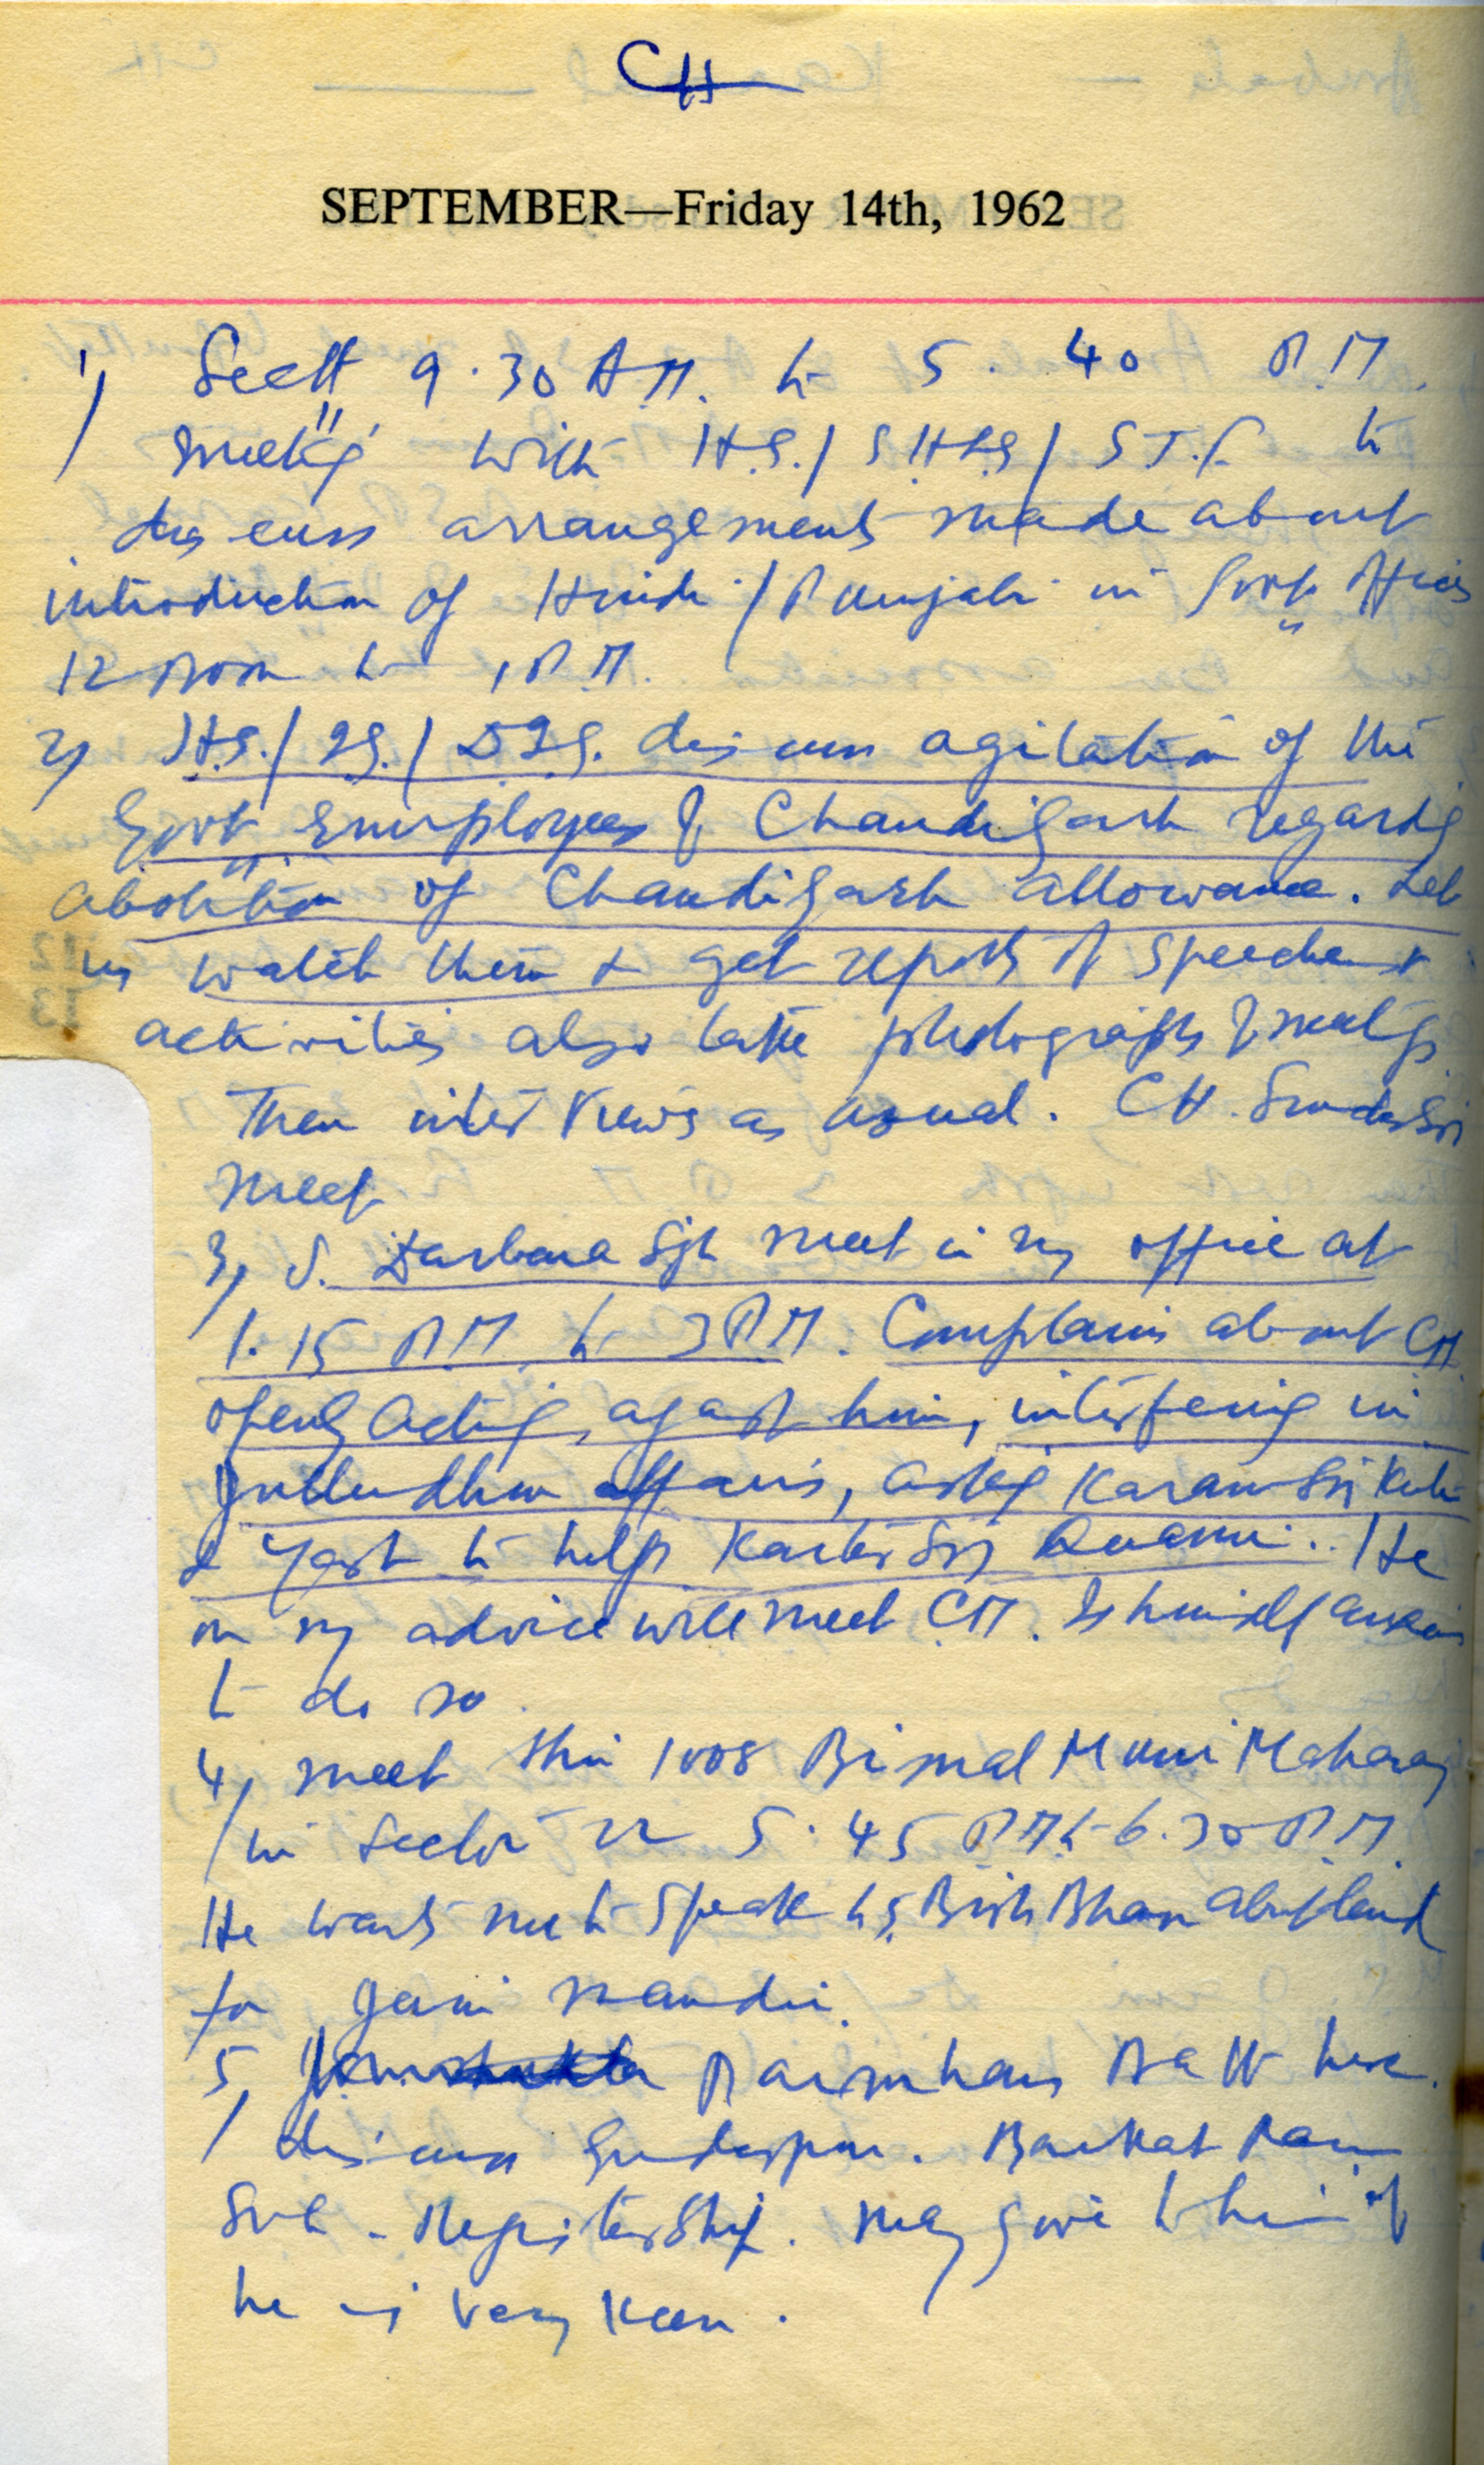 CH
SEPTEMBER—Friday 14th, 1962
1) Sectt 9.30 A.M. to 5.40 P.M.
Meeting with H.S./ S.H.L.S/ S.T.C. to
discuss arrangements made about
introduction of Hindi / Punjabi in Govt. Offices
12 Noon to 1 P.M.
2) H.S./ I.G./ D.I.G. discuss agitation of the
Govt. Employees of Chandigarh regarding
abolition of Chandigarh allowance. Let
us watch them & get reports of speeches &
activities also take photographs of meetings
Then interviews as usual. CH. Sunder Sin
meet
3) S. Darbara Sgh meet in my office at
1.15 P.M. to 3 P.M. Complains about CM
openly acting against him, interfering in
Jullundhur affairs, asking Karam Sin
& Yash to help Kartar Sin. He
on my advice will meet C.M. Is himself anxious
to do so.
4) meet Shri 1008 Bimal Muni Maharaj
in Sector 22 5.45 P.M to 6.30 P.M.
He wants me to speak to S. Brish Bhan about land
for Jain Mandir.
5) Parmhans Batt here.
discuss Gurdaspur. Barkat Ram
Sub-Registership. May give to him if
he is very keen.